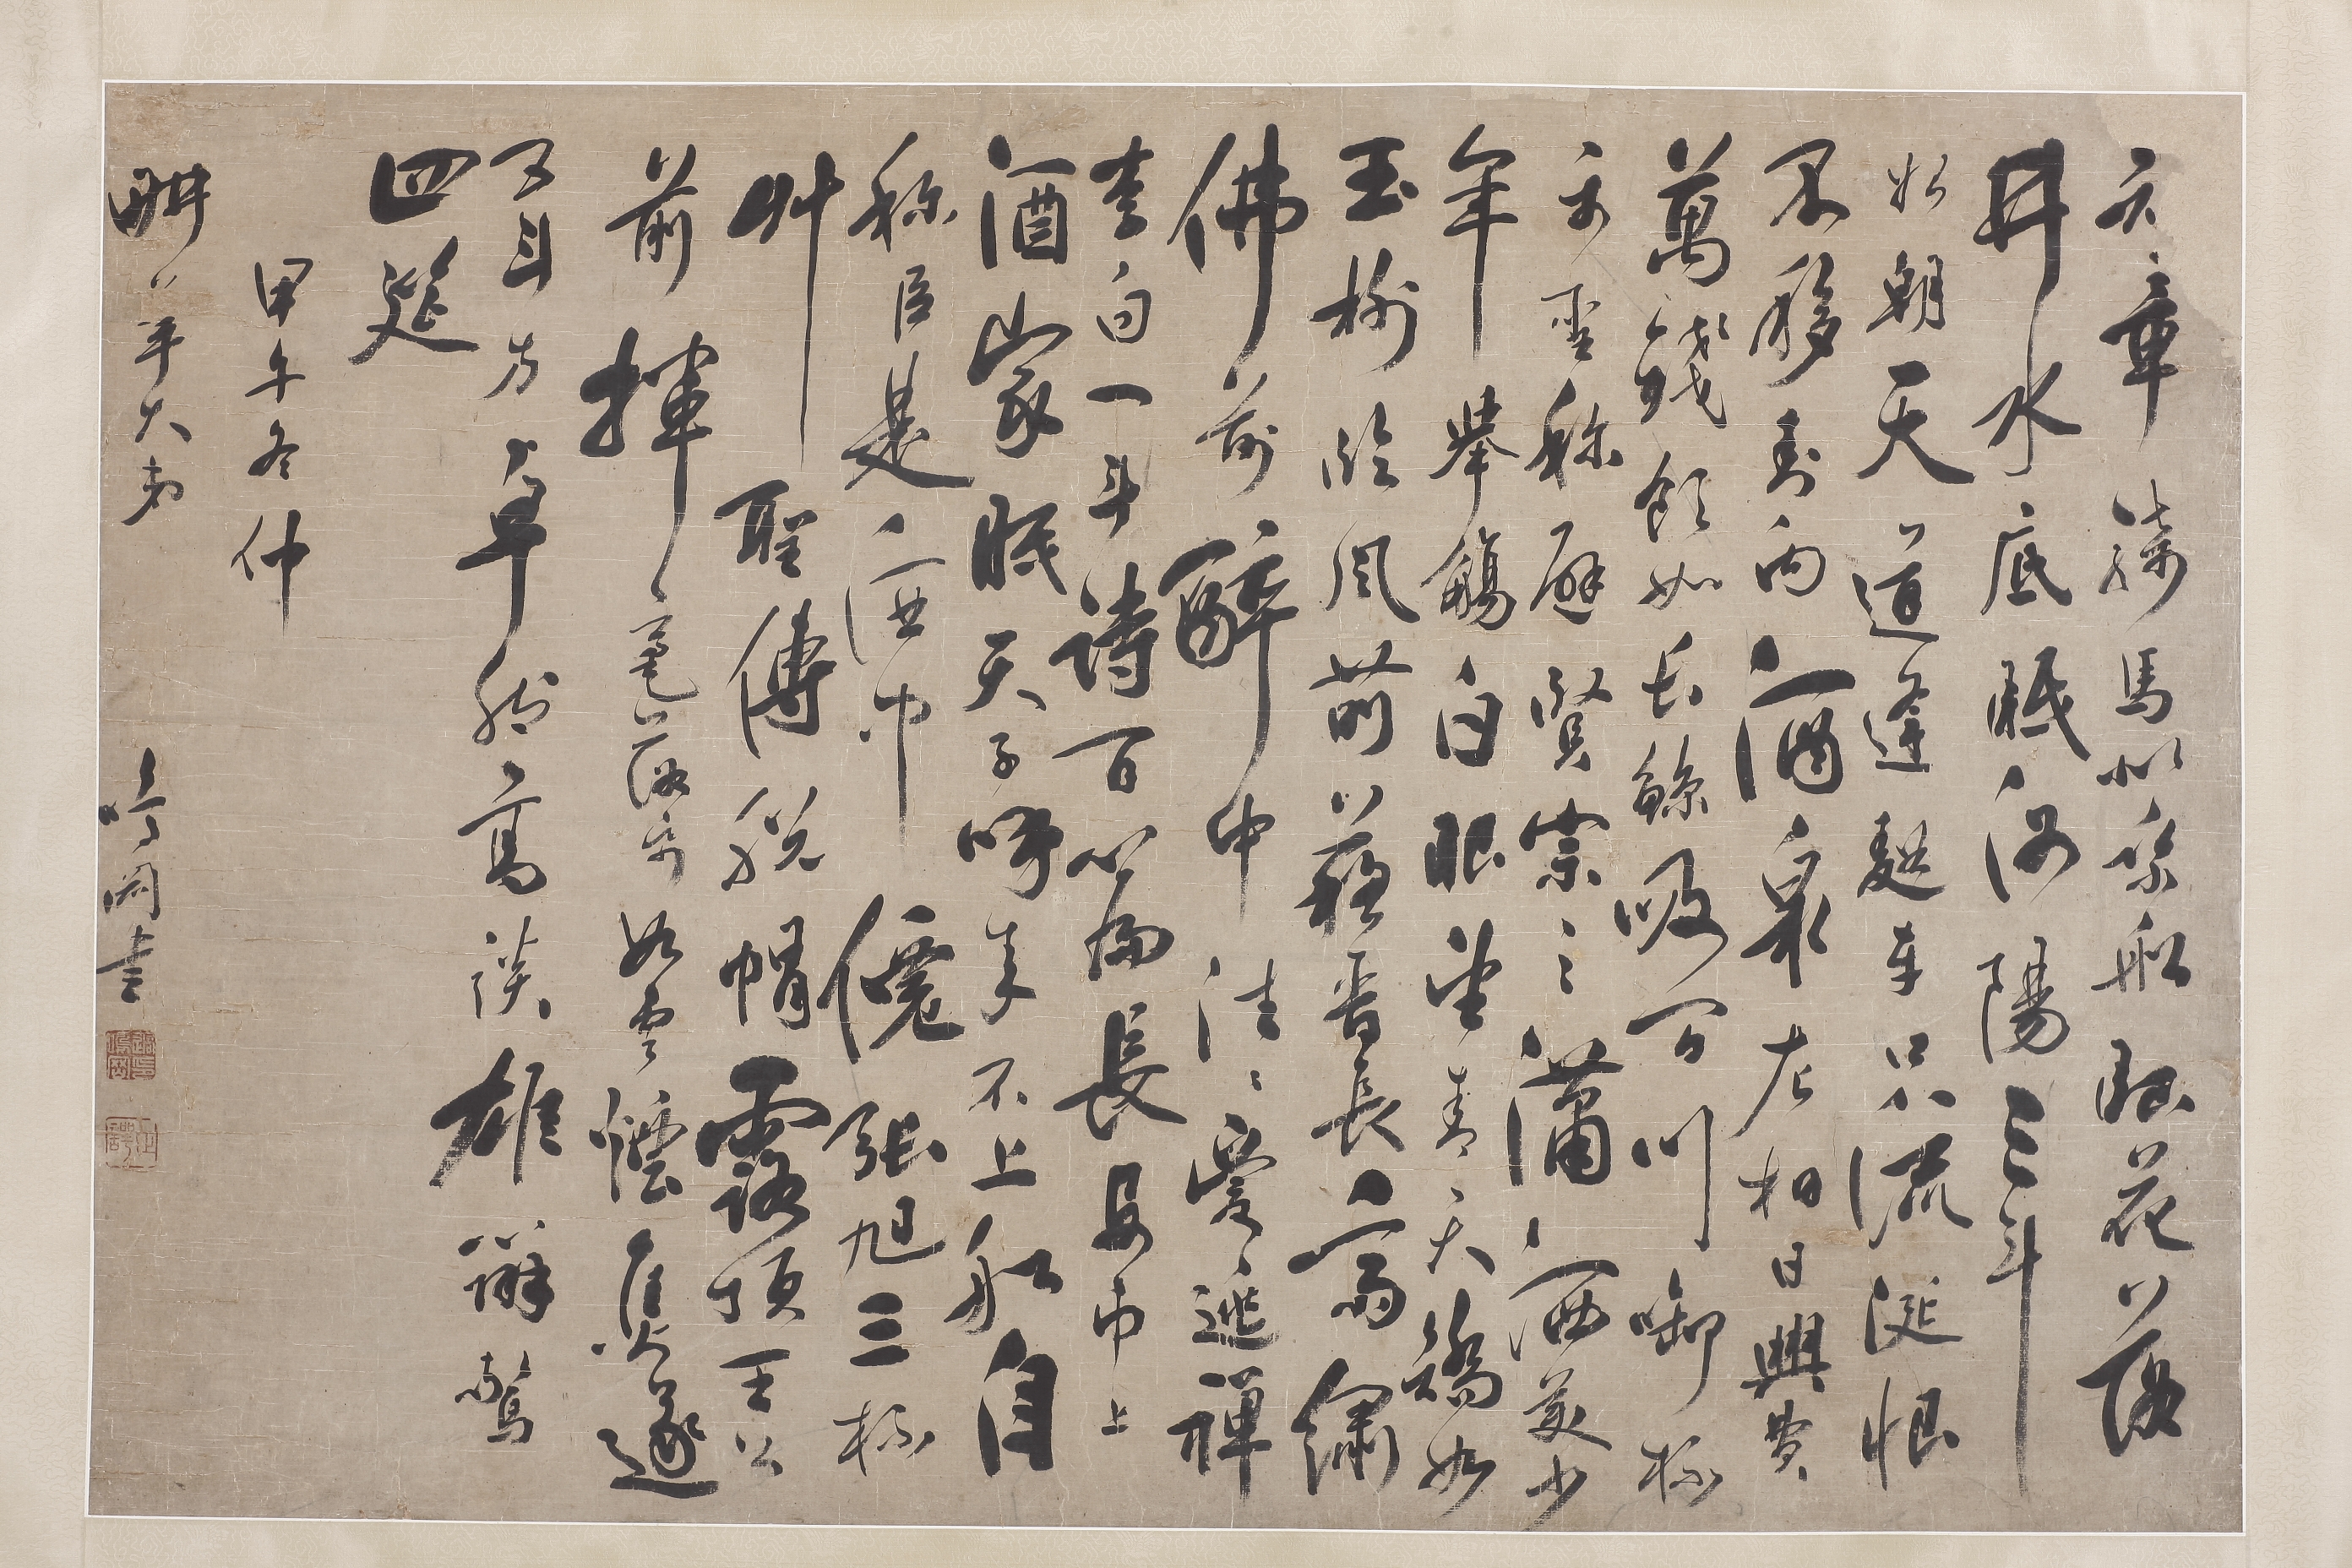 知章騎馬似乘船眼花落
井水底眠汝陽三斗
始朝天道逢麴車口流涎恨
不移封向酒泉左相日興費
萬錢飲如長鯨吸百川啣杯
樂聖稱避賢宗之瀟洒美少
年舉觴白眼望青天皎如
玉樹臨風前蘇晉長齋繡
佛前醉中往〻愛逃禪
李白一斗詩百篇長安市上
酒家眠天子呼來不上船自
稱臣是酒中僊張旭三杯
艸聖傳脫帽露頂王公
前揮毫落紙如雲煙焦遂
五斗方卓然高談雄辯驚
四筵
甲午冬仲
畊莘大弟 鳴岡書